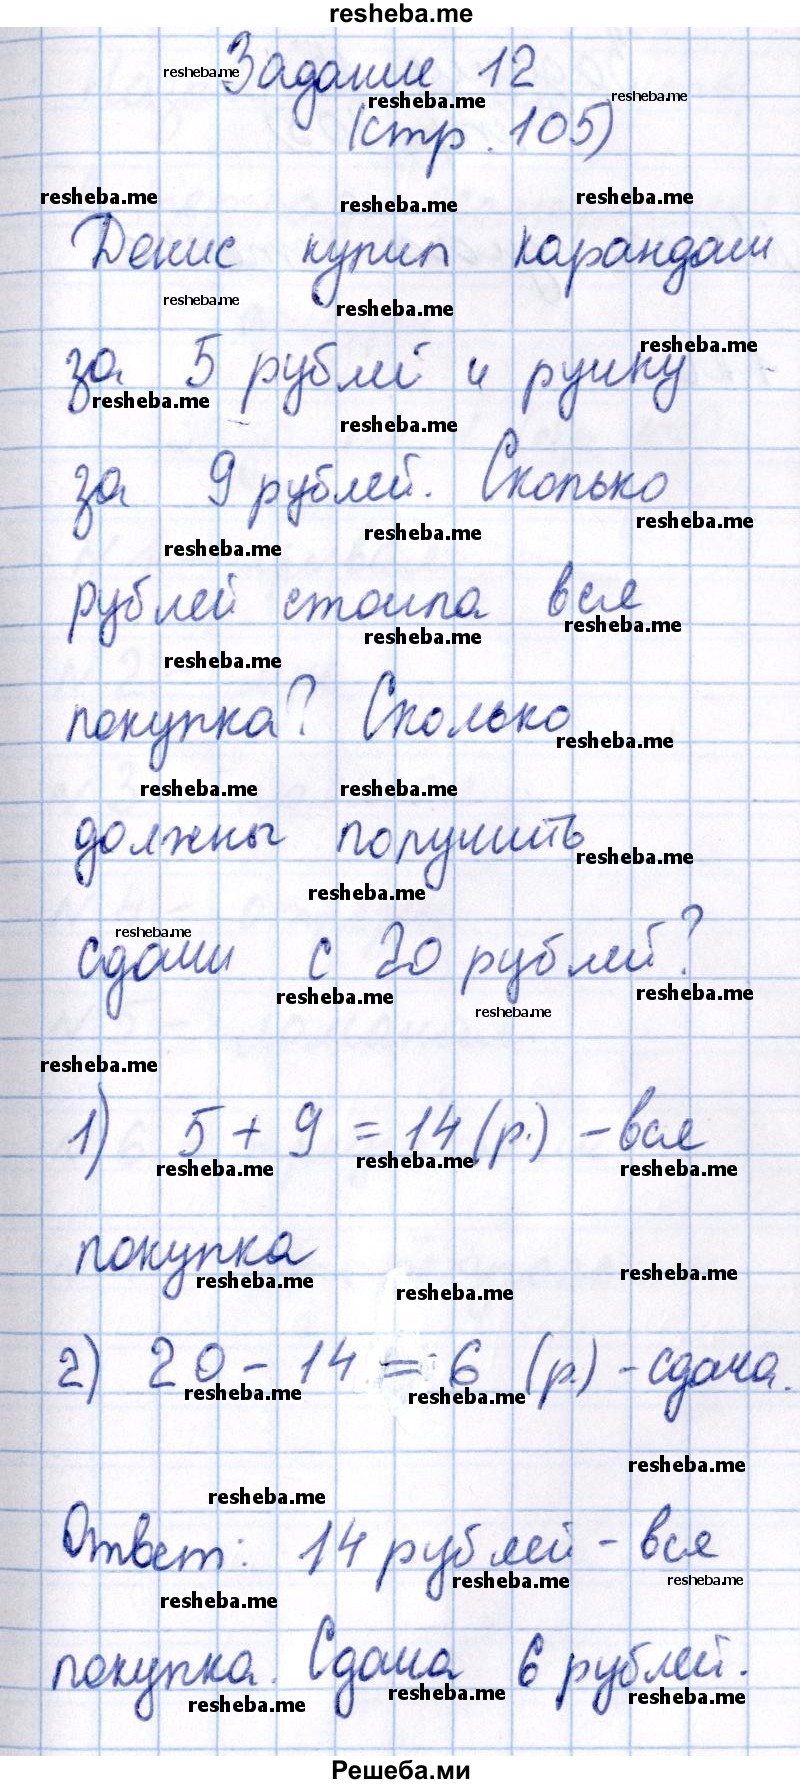 resheba.me
Задание 12
(стр. 105)
Денис купил карандаш
за 5 рублей и ручку
за 9 рублей. Сколько
рублей стоила вся
покупка? Сколько
должны получить
сдачи с 20 рублей?
1) 5 + 9 = 14 (р.) - вся
покупка
2) 20 - 14 = 6 (р.) - сдача.
Ответ: 14 рублей - вся
покупка. Сдача 6 рублей.
Решеба.ми